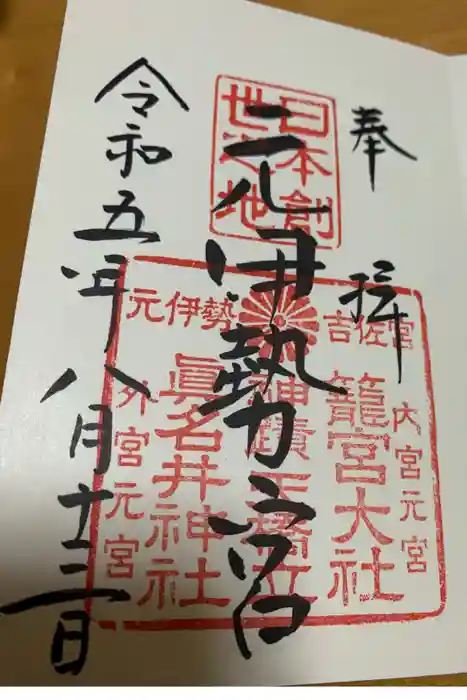 奉拝
日本創
世之地
元伊勢宮
吉佐宮
内宮元宮
籠宮大社
神蹟 天橋立
元伊勢
眞名井神社
外宮元宮
令和五年八月十三日